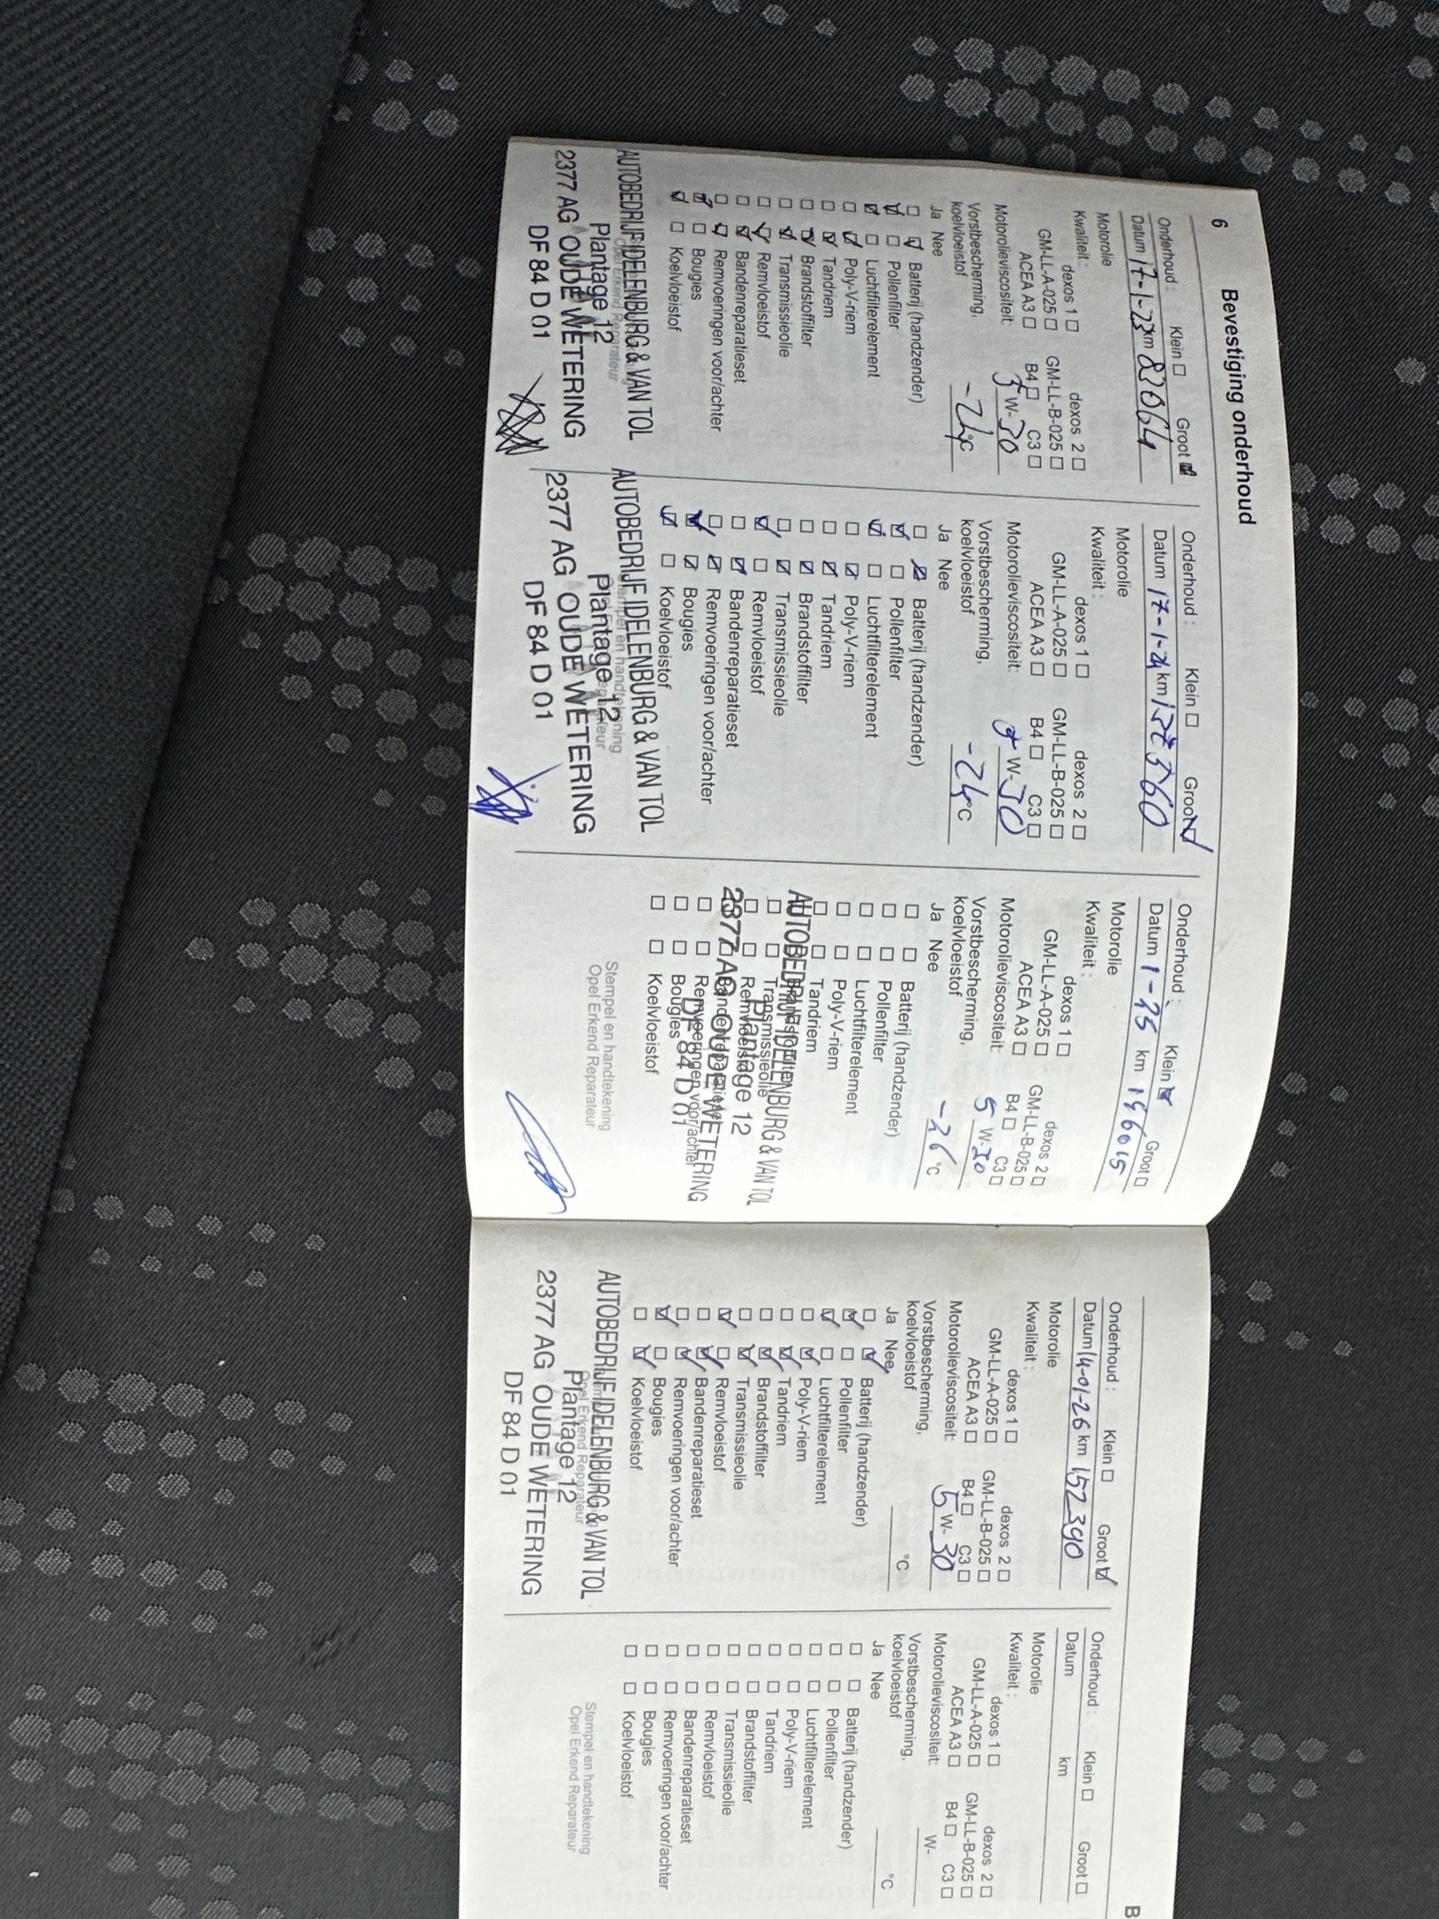 6
Bevestiging onderhoud
Onderhoud : Klein ☐ Groot ☑
Datum 17-1-23 km 83064
Motorolie
Kwaliteit : dexos 1 ☐ dexos 2 ☐
GM-LL-A-025 ☐ GM-LL-B-025 ☐
ACEA A3 ☐ B4 ☐ C3 ☐
Motorolieviscositeit: 5 W- 30
Vorstbescherming,
koelvloeistof -24 °C
Ja Nee
☐ ☑ Batterij (handzender)
☑ ☐ Pollenfilter
☑ ☐ Luchtfilterelement
☐ ☑ Poly-V-riem
☐ ☑ Tandriem
☐ ☑ Brandstoffilter
☐ ☑ Transmissieolie
☐ ☑ Remvloeistof
☐ ☑ Bandenreparatieset
☐ ☑ Remvoeringen voor/achter
☑ ☐ Bougies
☑ ☐ Koelvloeistof
AUTOBEDRIJF IDELENBURG & VAN TOL
Opel Erkend Reparateur
Plantage 12
2377 AG OUDE WETERING
DF 84 D 01
Onderhoud : Klein ☐ Groot ☑
Datum 17-1-24 km
Motorolie
Kwaliteit : dexos 1 ☐ dexos 2 ☐
GM-LL-A-025 ☐ GM-LL-B-025 ☐
ACEA A3 ☐ B4 ☐ C3 ☐
Motorolieviscositeit: W- 30
Vorstbescherming,
koelvloeistof -24 °C
Ja Nee
☐ ☑ Batterij (handzender)
☑ ☐ Pollenfilter
☑ ☐ Luchtfilterelement
☐ ☑ Poly-V-riem
☐ ☑ Tandriem
☐ ☑ Brandstoffilter
☐ ☑ Transmissieolie
☑ ☐ Remvloeistof
☐ ☑ Bandenreparatieset
☐ ☑ Remvoeringen voor/achter
☑ ☑ Bougies
☑ ☐ Koelvloeistof
AUTOBEDRIJF IDELENBURG & VAN TOL
Stempel en handtekening
Plantage 12
2377 AG OUDE WETERING
DF 84 D 01
Onderhoud : Klein ☑ Groot ☐
Datum 1-25 km 146015
Motorolie
Kwaliteit : dexos 1 ☐ dexos 2 ☐
GM-LL-A-025 ☐ GM-LL-B-025 ☐
ACEA A3 ☐ B4 ☐ C3 ☐
Motorolieviscositeit: 5 W- 30
Vorstbescherming,
koelvloeistof -26 °C
Ja Nee
☐ ☐ Batterij (handzender)
☐ ☐ Pollenfilter
☐ ☐ Luchtfilterelement
☐ ☐ Poly-V-riem
☐ ☐ Tandriem
☐ ☐ Brandstoffilter
☐ ☐ Transmissieolie
☐ ☐ Remvloeistof
☐ ☐ Bandenreparatieset
☐ ☐ Remvoeringen voor/achter
☐ ☐ Bougies
☐ ☐ Koelvloeistof
AUTOBEDRIJF IDELENBURG & VAN TOL
Plantage 12
2377 AG OUDE WETERING
DF 84 D 01
Stempel en handtekening
Opel Erkend Reparateur
Onderhoud : Klein ☐ Groot ☑
Datum 14-01-26 km 152390
Motorolie
Kwaliteit : dexos 1 ☐ dexos 2 ☐
GM-LL-A-025 ☐ GM-LL-B-025 ☐
ACEA A3 ☐ B4 ☐ C3 ☐
Motorolieviscositeit: 5 W- 30
Vorstbescherming,
koelvloeistof °C
Ja Nee
☐ ☑ Batterij (handzender)
☑ ☐ Pollenfilter
☑ ☐ Luchtfilterelement
☐ ☑ Poly-V-riem
☐ ☑ Tandriem
☐ ☑ Brandstoffilter
☐ ☑ Transmissieolie
☑ ☐ Remvloeistof
☐ ☑ Bandenreparatieset
☐ ☑ Remvoeringen voor/achter
☑ ☐ Bougies
☐ ☑ Koelvloeistof
AUTOBEDRIJF IDELENBURG & VAN TOL
Opel Erkend Reparateur
Plantage 12
2377 AG OUDE WETERING
DF 84 D 01
B
Onderhoud : Klein ☐ Groot ☐
Datum km
Motorolie
Kwaliteit : dexos 1 ☐ dexos 2 ☐
GM-LL-A-025 ☐ GM-LL-B-025 ☐
ACEA A3 ☐ B4 ☐ C3 ☐
Motorolieviscositeit: W-
Vorstbescherming,
koelvloeistof °C
Ja Nee
☐ ☐ Batterij (handzender)
☐ ☐ Pollenfilter
☐ ☐ Luchtfilterelement
☐ ☐ Poly-V-riem
☐ ☐ Tandriem
☐ ☐ Brandstoffilter
☐ ☐ Transmissieolie
☐ ☐ Remvloeistof
☐ ☐ Bandenreparatieset
☐ ☐ Remvoeringen voor/achter
☐ ☐ Bougies
☐ ☐ Koelvloeistof
Stempel en handtekening
Opel Erkend Reparateur